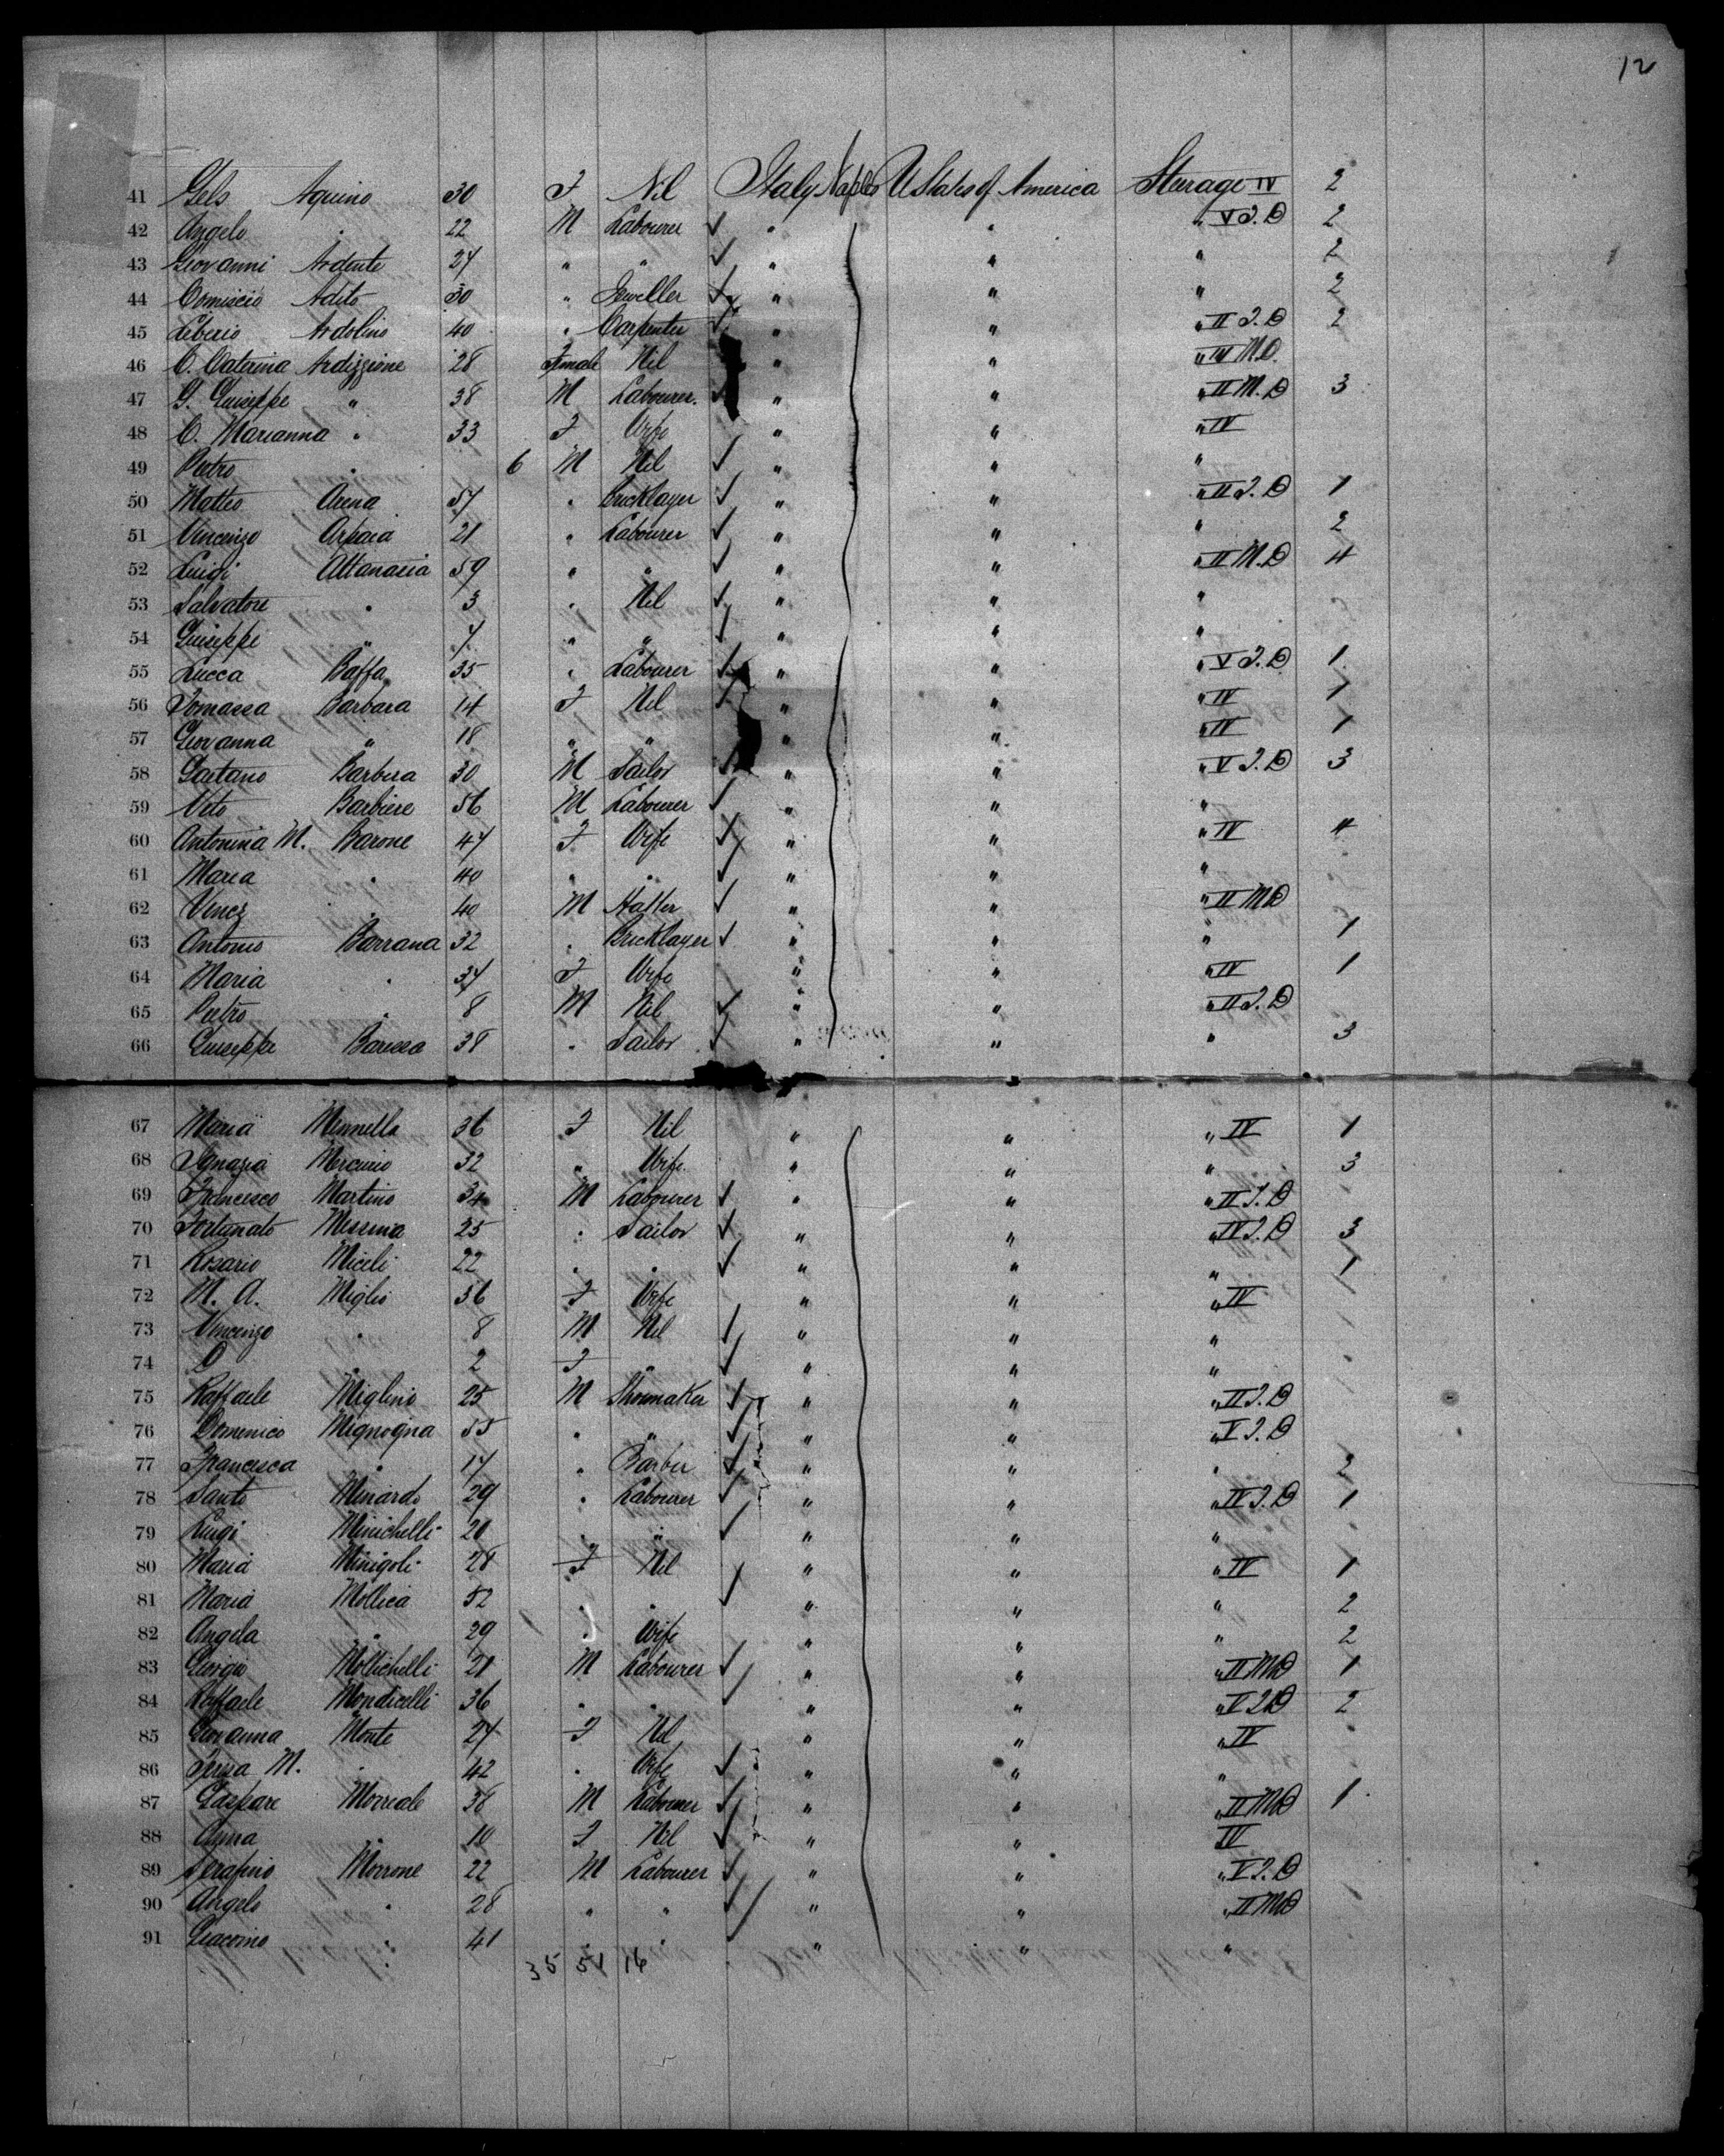 12
41 Gels Aquino 30 F Nil Italy Naples U States of America Steerage IV 2
42 Angelo " 22 M Labourer " " " V J.D 2
43 Giovanni Ardente 27 " " " " " 2
44 Comiscio Adito 30 " Jeweller " " " 2
45 Liberio Ardolino 40 " Carpenter " " " II J.D 2
46 C. Caterina Ardizzione 28 Female Nil " " " IV M.D.
47 G. Guiseppe " 38 M Labourer. " " " II M.D 3
48 C. Marianna " 33 F Wife " " " IV
49 Pietro " 6 M Nil " " "
50 Matteo Arena 57 " Bricklayer " " " II J.D 1
51 Vincenzo Arpaia 21 " Labourer " " " 2
52 Luigi Attanasia 59 " " " " " II M.D 4
53 Salvatore " 3 " Nil " " "
54 Guiseppe " 7 " " " " "
55 Lucca Baffa 35 " Labourer " " " V J.D 1
56 Tomassa Barbara 14 F Nil " " " IV 1
57 Giovanna " 18 " " " " " IV 1
58 Gaetano Barbera 30 M Sailor " " " V J.D 3
59 Vito Barbiere 56 M Labourer " " "
60 Antonina M. Barone 47 F Wife " " " IV 4
61 Maria " 40 " " " " "
62 Vincz " 40 M Hatter " " " II MD
63 Antonio Barrana 32 " Bricklayer " " " 1
64 Maria " 37 F Wife " " " IV 1
65 Pietro " 8 M Nil " " " II J.D
66 Guiseppe Baressa 38 " Sailor " " " 3
67 Maria Mennella 36 F Nil " " " IV 1
68 Ignazia Mercurio 32 " Wife " " " 3
69 Francesco Martino 34 M Labourer " " " II J.D
70 Fortunato Messina 25 " Sailor " " " IV J.D 3
71 Rosario Miceli 22 " " " " " 1
72 M. A. Miglio 36 F Wife " " " IV
73 Vincenzo " 8 M Nil " " "
74 D " 2 F " " " "
75 Raffaele Miglino 25 M Shoemaker " " " II J.D
76 Domenico Mignogna 55 " " " " " V J.D
77 Francesca " 17 " Barber " " " 2
78 Santo Minardo 29 " Labourer " " " IV J.D 1
79 Luigi Minichelli 20 " " " " "
80 Maria Minigoli 28 F Nil " " " IV 1
81 Maria Mollica 52 " " " " " 2
82 Angela " 29 " Wife " " " 2
83 Giorgio Mollichelli 21 M Labourer " " " II MD 1
84 Raffaele Mondicelli 36 " " " " " V J.D 2
85 Giovanna Monte 27 F Nil " " " IV
86 Teresa M. " 42 " Wife " " "
87 Gaspare Morreale 38 M Labourer " " " II MD 1
88 Anna " 10 F Nil " " IV
89 Serafino Morrone 22 M Labourer " " " V J.D
90 Angelo " 28 " " " " " II MD
91 Giacomo " 41 " " " " "
35 51 16